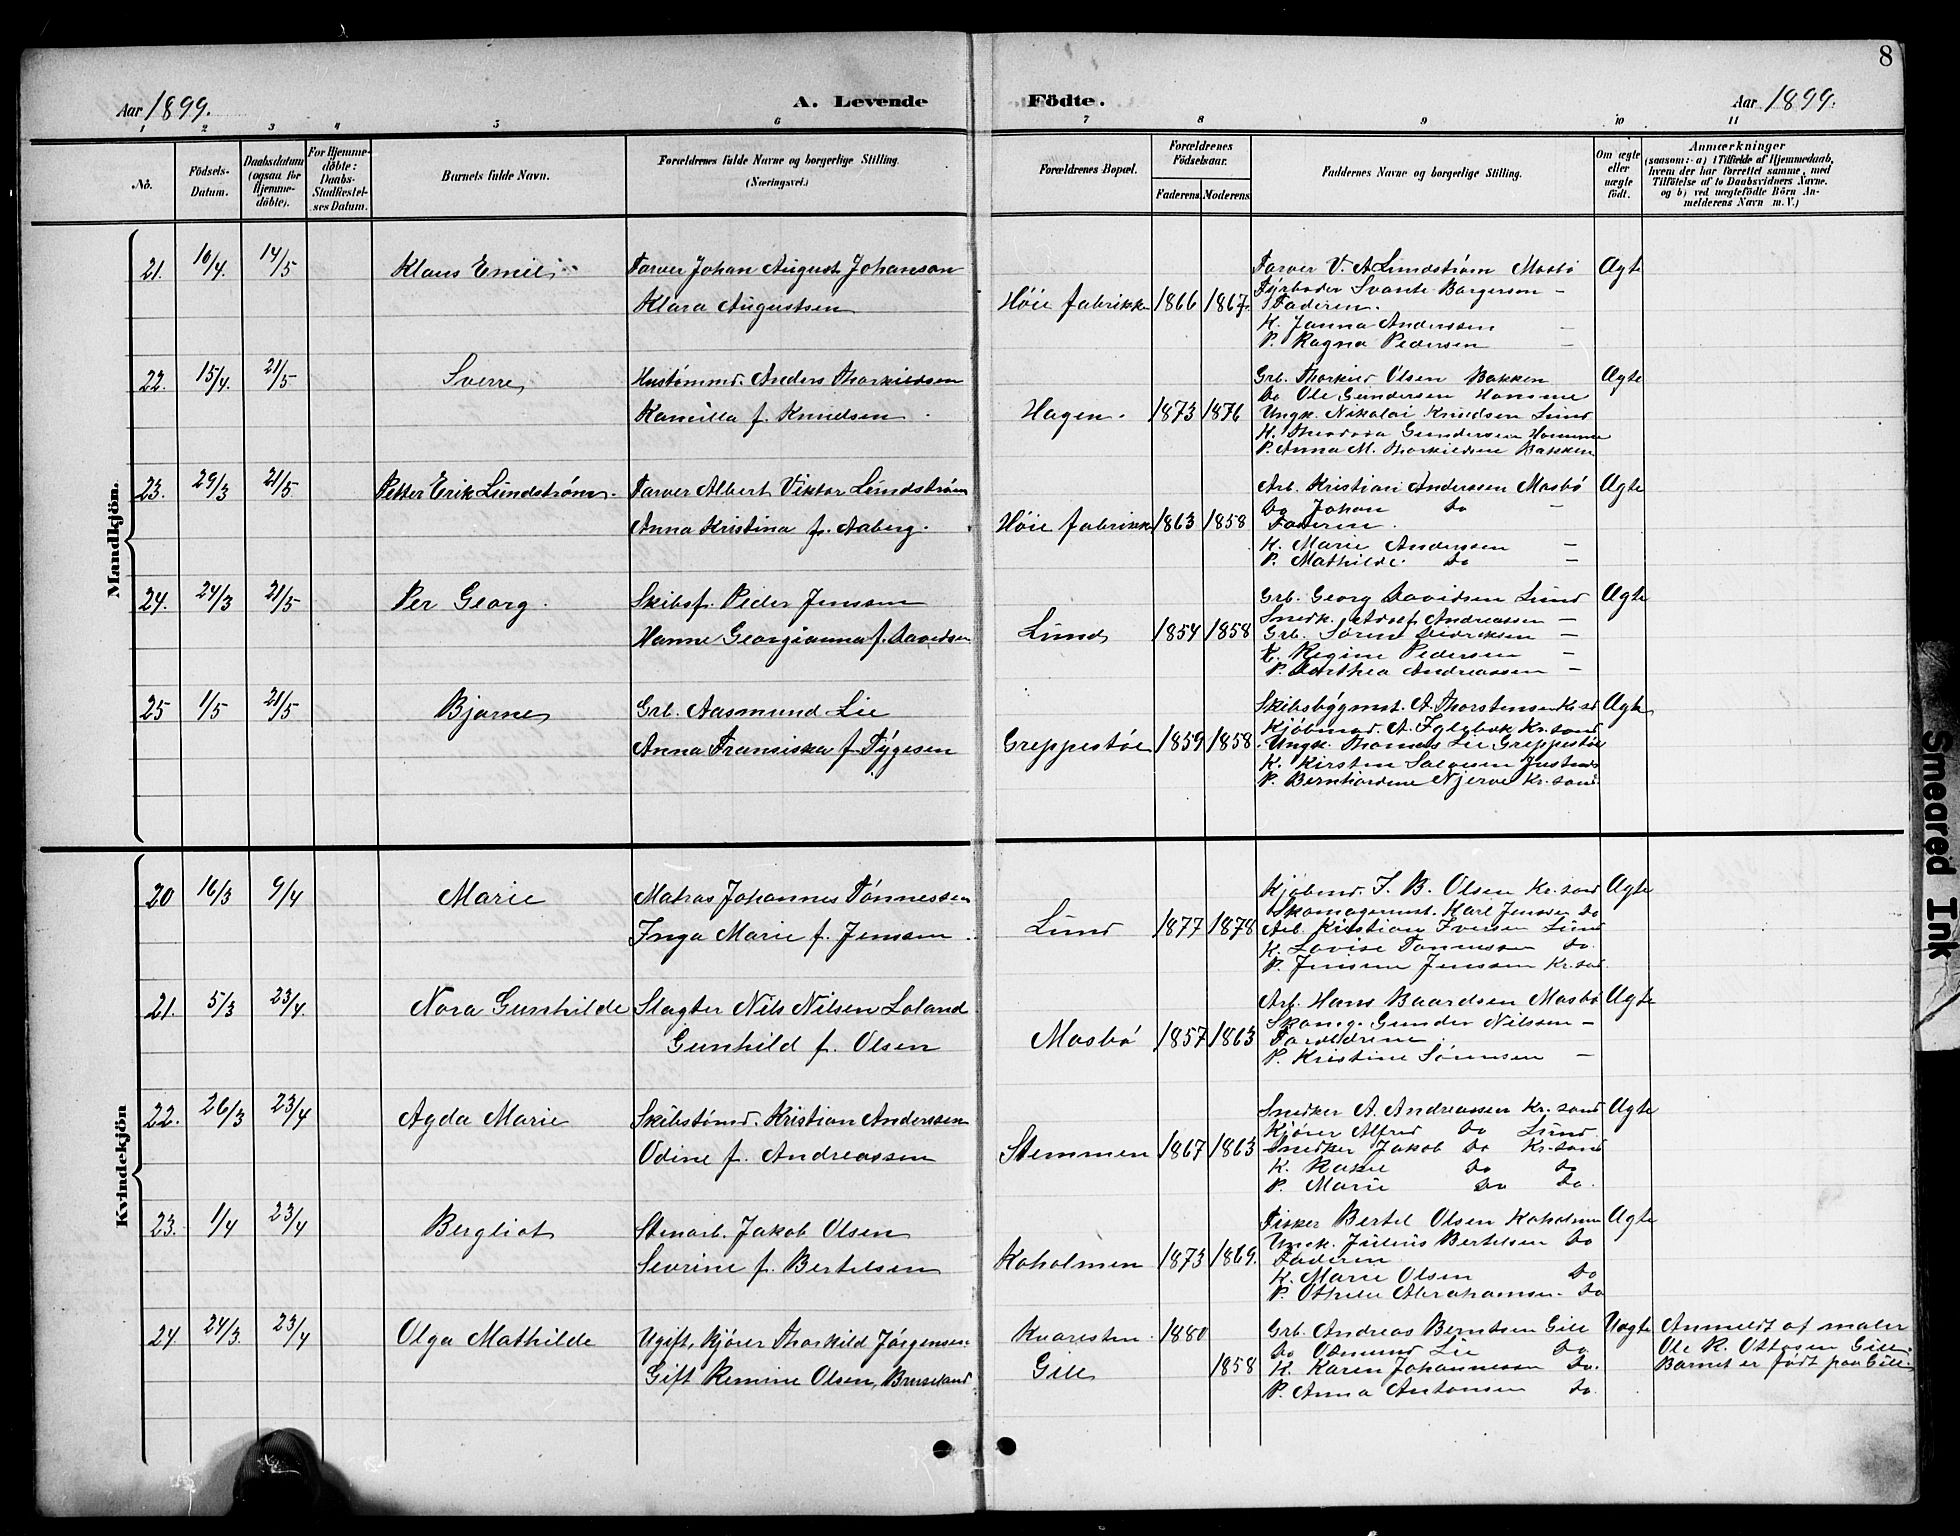 8
Aar 1899.
A. Levende Födte.
Aar 1899.
1 2 3 4 5 6 7 8 9 10 11
No.
Födsels-Datum.
Daabsdatum (ogsaa for Hjemme-døbte).
For Hjemme-døbte: Daabs-Stadfæstel-ses Datum.
Barnets fulde Navn.
Forældrenes fulde Navne og borgerlige Stilling. (Næringsvei.)
Forældrenes Bopæl.
Forældrenes Födselsaar.
Faderens Moderens
Faddernes Navne og borgerlige Stilling.
Om ægte eller uægte födt.
Anmærkninger
(saasom: a) i Tilfælde af Hjemmedaab, hvem der har forrettet samme, med Tilføielse af to Daabsvidners Navne. og b) ved uægtefödte Börn An-melderens Navn m. V.)
Mandkjön.
21. 10/4. 14/5 Klaus Emil
Farver Johan August Johanson
Klara Augustsen
Høie fabrikke 1866 1867.
Farver V. A Lundstrøm Mosbø
Svante Borgerson —
Faderen.
K. Janna Anderssen —
P. Ragna Pedersen —
Ægte
22. 15/4. 21/5 Sverre
Anders Thorkildsen
Kamilla f. Knudsen
Hagen. 1873 1876
Grb. Thorkild Olsen Bakken
Do Ole Gundersen Homme
Ungk. Nikolai Knudsen Lund
K. Theodora Gundersen Homme
P. Anna M. Thorkildsen Bakken
Ægte
23. 29/3 21/5 Petter Erik Lundstrøm.
Farver Albert Viktor Lundstrøm
Anna Kristina f. Aaberg.
Høie fabrikke 1863 1858
Arb. Kristian Anderssen Mosbø
Do Johan Do —
Faderen.
K. Marie Anderssen —
P. Mathilde. Do —
Ægte
24. 24/3 21/5 Per Georg.
Skibsf. Peder Jenssen
Hanne Georgianna f. Davidsen
Lund 1854 1858
Grb. Georg Davidsen Lund
Snedk. Adolf Andreassen —
Grb. Søren Didriksen —
K. Regine Pedersen —
P. Dorthea Andreassen —
Ægte
25 1/5 21/5 Bjarne
Grb. Aasmund Lie
Anna Fransiska f. Tygesen
Greppestøl 1859 1858
Skibsbygmst. A. Thorstensen Kr.sd
Kjøbmd. A. Fylgbok Kr.sand
Ungk. Thomas Lie Greppestøl
K. Kirsten Salvesen
P. Bernhardine Njerve Kr.sand
Ægte
Kvindekjön
20 16/3 9/4 Marie
Matros Johannes Tønnessen
Inga Marie f. Jensen.
Lund 1877 1878
Kjøbmd. J. B. Olsen Kr.sand
Skomagermst. Karl Jensen Do
Arb. Kristian Iversen Lund
K. Lovise Tønnessen Do.
P. Jensine Jenssen Kr.sd.
Ægte
21. 5/3 23/4. Nora Gunhilde
Slagter Nils Nilsen Loland
Gunhild f. Olsen
Mosbø 1857 1863
Arb. Hans Baardsen Mosbø
Skomg. Gunder Nilssen —
Forældrene.
P. Kristine Sønnesen —
Ægte
22. 26/3 23/4 Agda Marie
Skibstømd. Kristian Anderssen
Odine f. Andreassen
Stemmen 1867 1863
Snedker A. Andreassen Kr.sand
Kjører Alfred Do Lund.
Snedker Jakob Do Kr.sand
K. Rakel Do Do
P. Marie Do Do.
Ægte
23. 1/4 23/4 Bergliot
Stenarb. Jakob Olsen
Severine f. Bertelsen
Koholmen 1873 1869.
Fisker Bertel Olsen Koholmen
Ungk. Julius Bertelsen Do
Faderen
K. Marie Olsen Do
P. Othilie Abrahamsen. Do
Ægte
24. 24/3. 23/4 Olga Mathilde
Ugift, kjører Thorkild Jørgensen.
Gift Remine Olsen, Bruseland
Kvaresten. 1880
Gill 1858
Grb. Andreas Berntsen Gill
Do Osmund Lie Do
K. Karen Johannessen Do.
P. Anna Antonsen Do.
Uægte
Anmeldt af maler
Ole R. Ottosen Gill.
Barnet er født paa Gill.
Smeared Ink